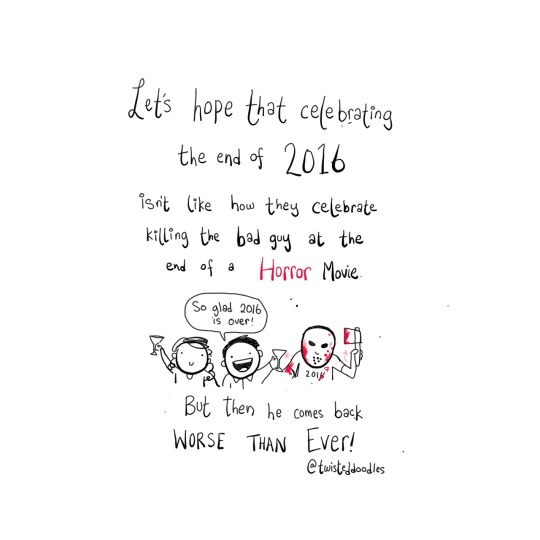 Let's hope that celebrating
the end of 2016
isn't like how they celebrate
killing the bad guy at the
end of a Horror Movie.
So glad 2016
is over!
But then he comes back
WORSE THAN Ever!
@twisteddoodles